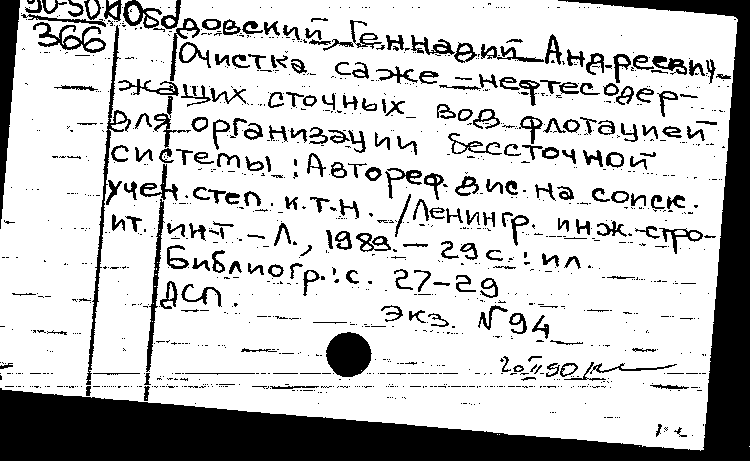 90-50к Ободовский, Геннадий Андреевич
366
Очистка саже-нефтесодер-
жащих сточных вод флотацией
для организации бессточной
системы : Автореф. дис. на соиск.
учен. степ. к.т.н. /Ленингр. инж.-стро-
ит. ин-т. - Л., 1989. - 29 с. : ил.
Библиогр.: с. 27-29
ДСП.
Экз. N 94